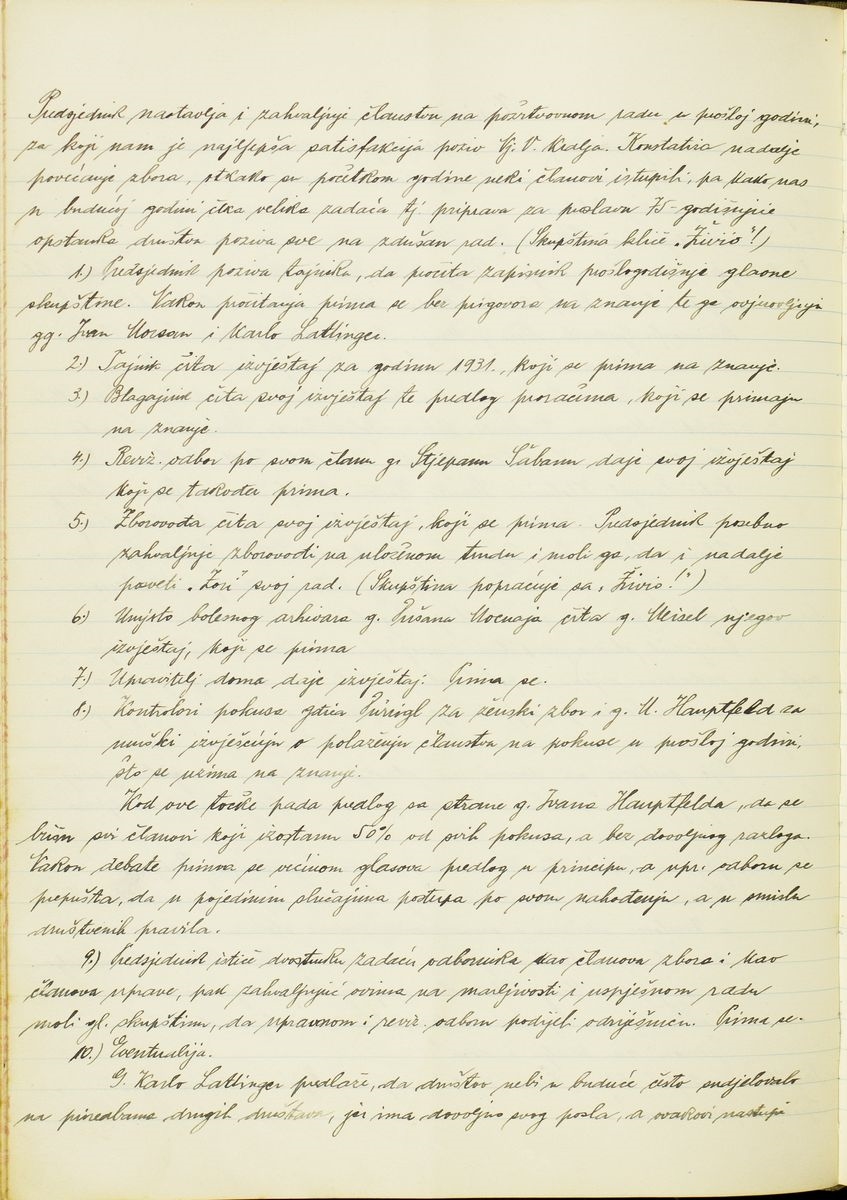 Predsjednik nastavlja i zahvaljuje članstvu na požrtvovnom radu u prošloj godini,
za koji nam je najljepša satisfakcija poziv Nj. V. Kralja. Konstatira nadalje
povećanje zbora, otkako su početkom godine neki članovi istupili, pa kako nas
u budućoj godini čeka velika zadaća tj. priprava za proslavu 75-godišnjice
opstanka društva poziva sve na zdušan rad. (Skupština kliče „Živio"!)
1.) Predsjednik poziva tajnika, da pročita zapisnik prošlogodišnje glavne
skupštine. Nakon pročitanja prima se bez prigovora na znanje te ga ovjerovljuju
gg. Ivan i Karlo Lattinger.
2.) Tajnik čita izvještaj za godinu 1931., koji se prima na znanje.
3.) Blagajnik čita svoj izvještaj te predlog proračuna, koji se primaju
na znanje.
4.) Reviz. odbor po svom članu g. Stjepanu Šabanu daje svoj izvještaj
koji se također prima.
5.) Zborovođa čita svoj izvještaj, koji se prima. Predsjednik posebno
zahvaljuje zborovođi na uloženom trudu i moli ga, da i nadalje
posveti „Zori" svoj rad. (Skupština popraćuje sa „Živio!")
6.) Umjesto bolesnog arhivara g. Dušana čita g. Meisel njegov
izvještaj, koji se prima
7.) Upravitelj doma daje izvještaj. Prima se.
8.) Kontrolori pokusa gdjica za ženski zbor i g. M. Hauptfeld za
muški izvješćuju o polaženju članstva na pokuse u prošloj godini,
što se uzima na znanje.
Kod ove točke pada predlog sa strane g. Ivana Hauptfelda „da se
brišu svi članovi koji izostanu 50% od svih pokusa, a bez dovoljnog razloga.
Nakon debate prima se većinom glasova predlog u principu, a upr. odboru se
prepušta, da u pojedinim slučajima postupa po svom nahođenju, a u smislu
društvenih pravila.
9.) Predsjednik ističe dvostruku zadaću odbornika kao članova zbora i kao
članova uprave, pak zahvaljujući ovima na marljivosti i uspješnom radu
moli gl. skupštinu, da upravnom i reviz. odboru podijeli odriješnicu. Prima se.
10.) Eventualija.
G. Karlo Lattinger predlaže, da društvo nebi u buduće često sudjelovalo
na priredbama drugih društava, jer ima dovoljno svog posla, a ovakovi nastupi